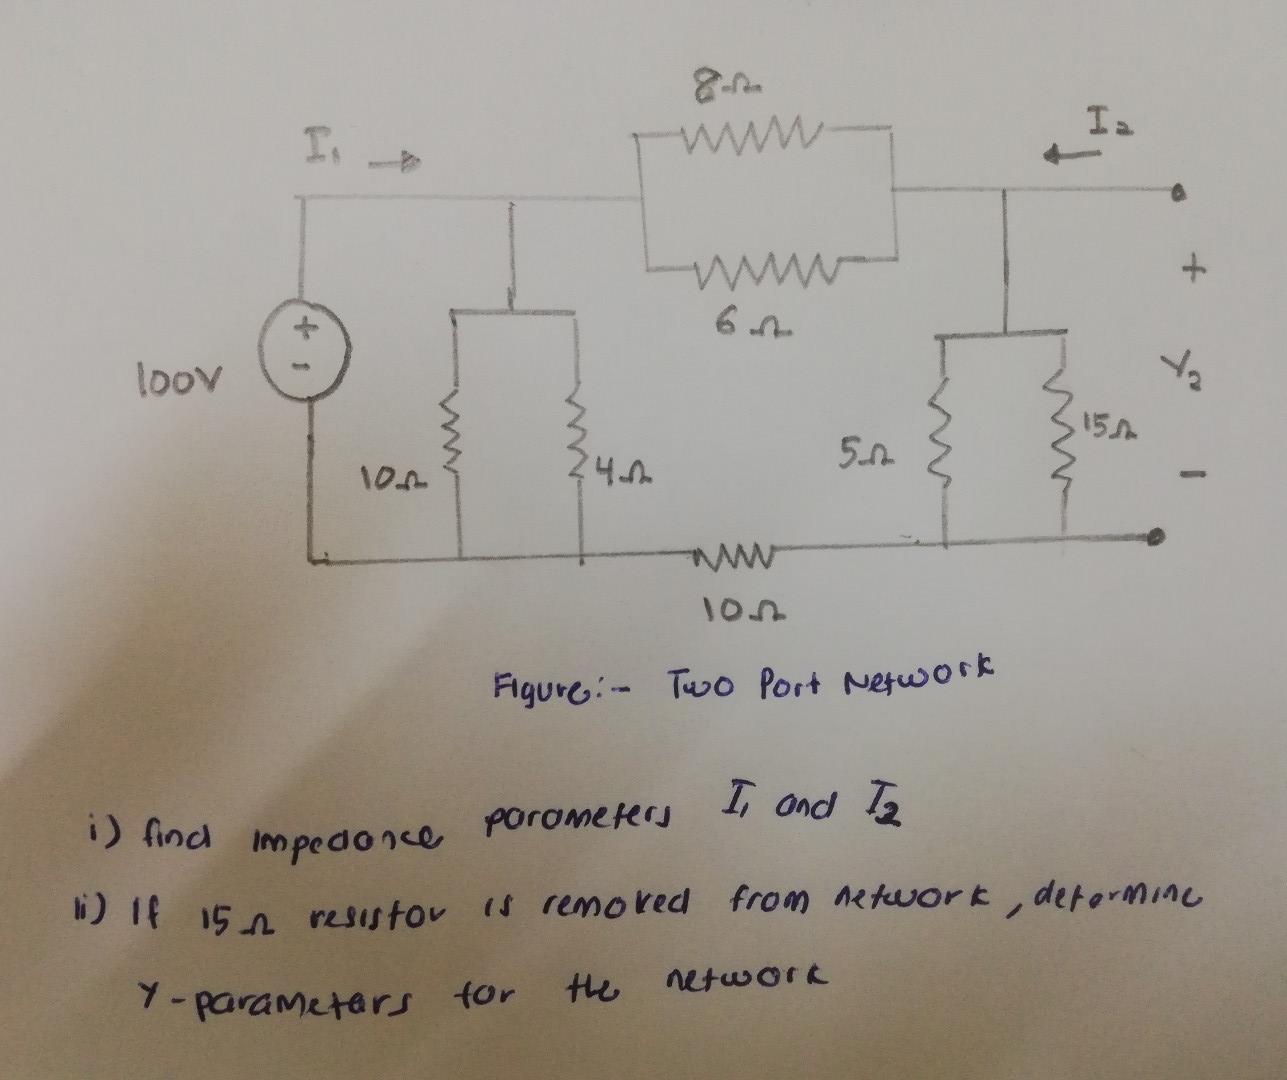 8Ω
I₁
I₂
+
6Ω
100V
+
-
V₂
10Ω
4Ω
5Ω
15Ω
-
10Ω
Figure:- Two Port Network
i) find impedance parameters I₁ and I₂
ii) If 15Ω resistor is removed from network, determine
Y-parameters for the network